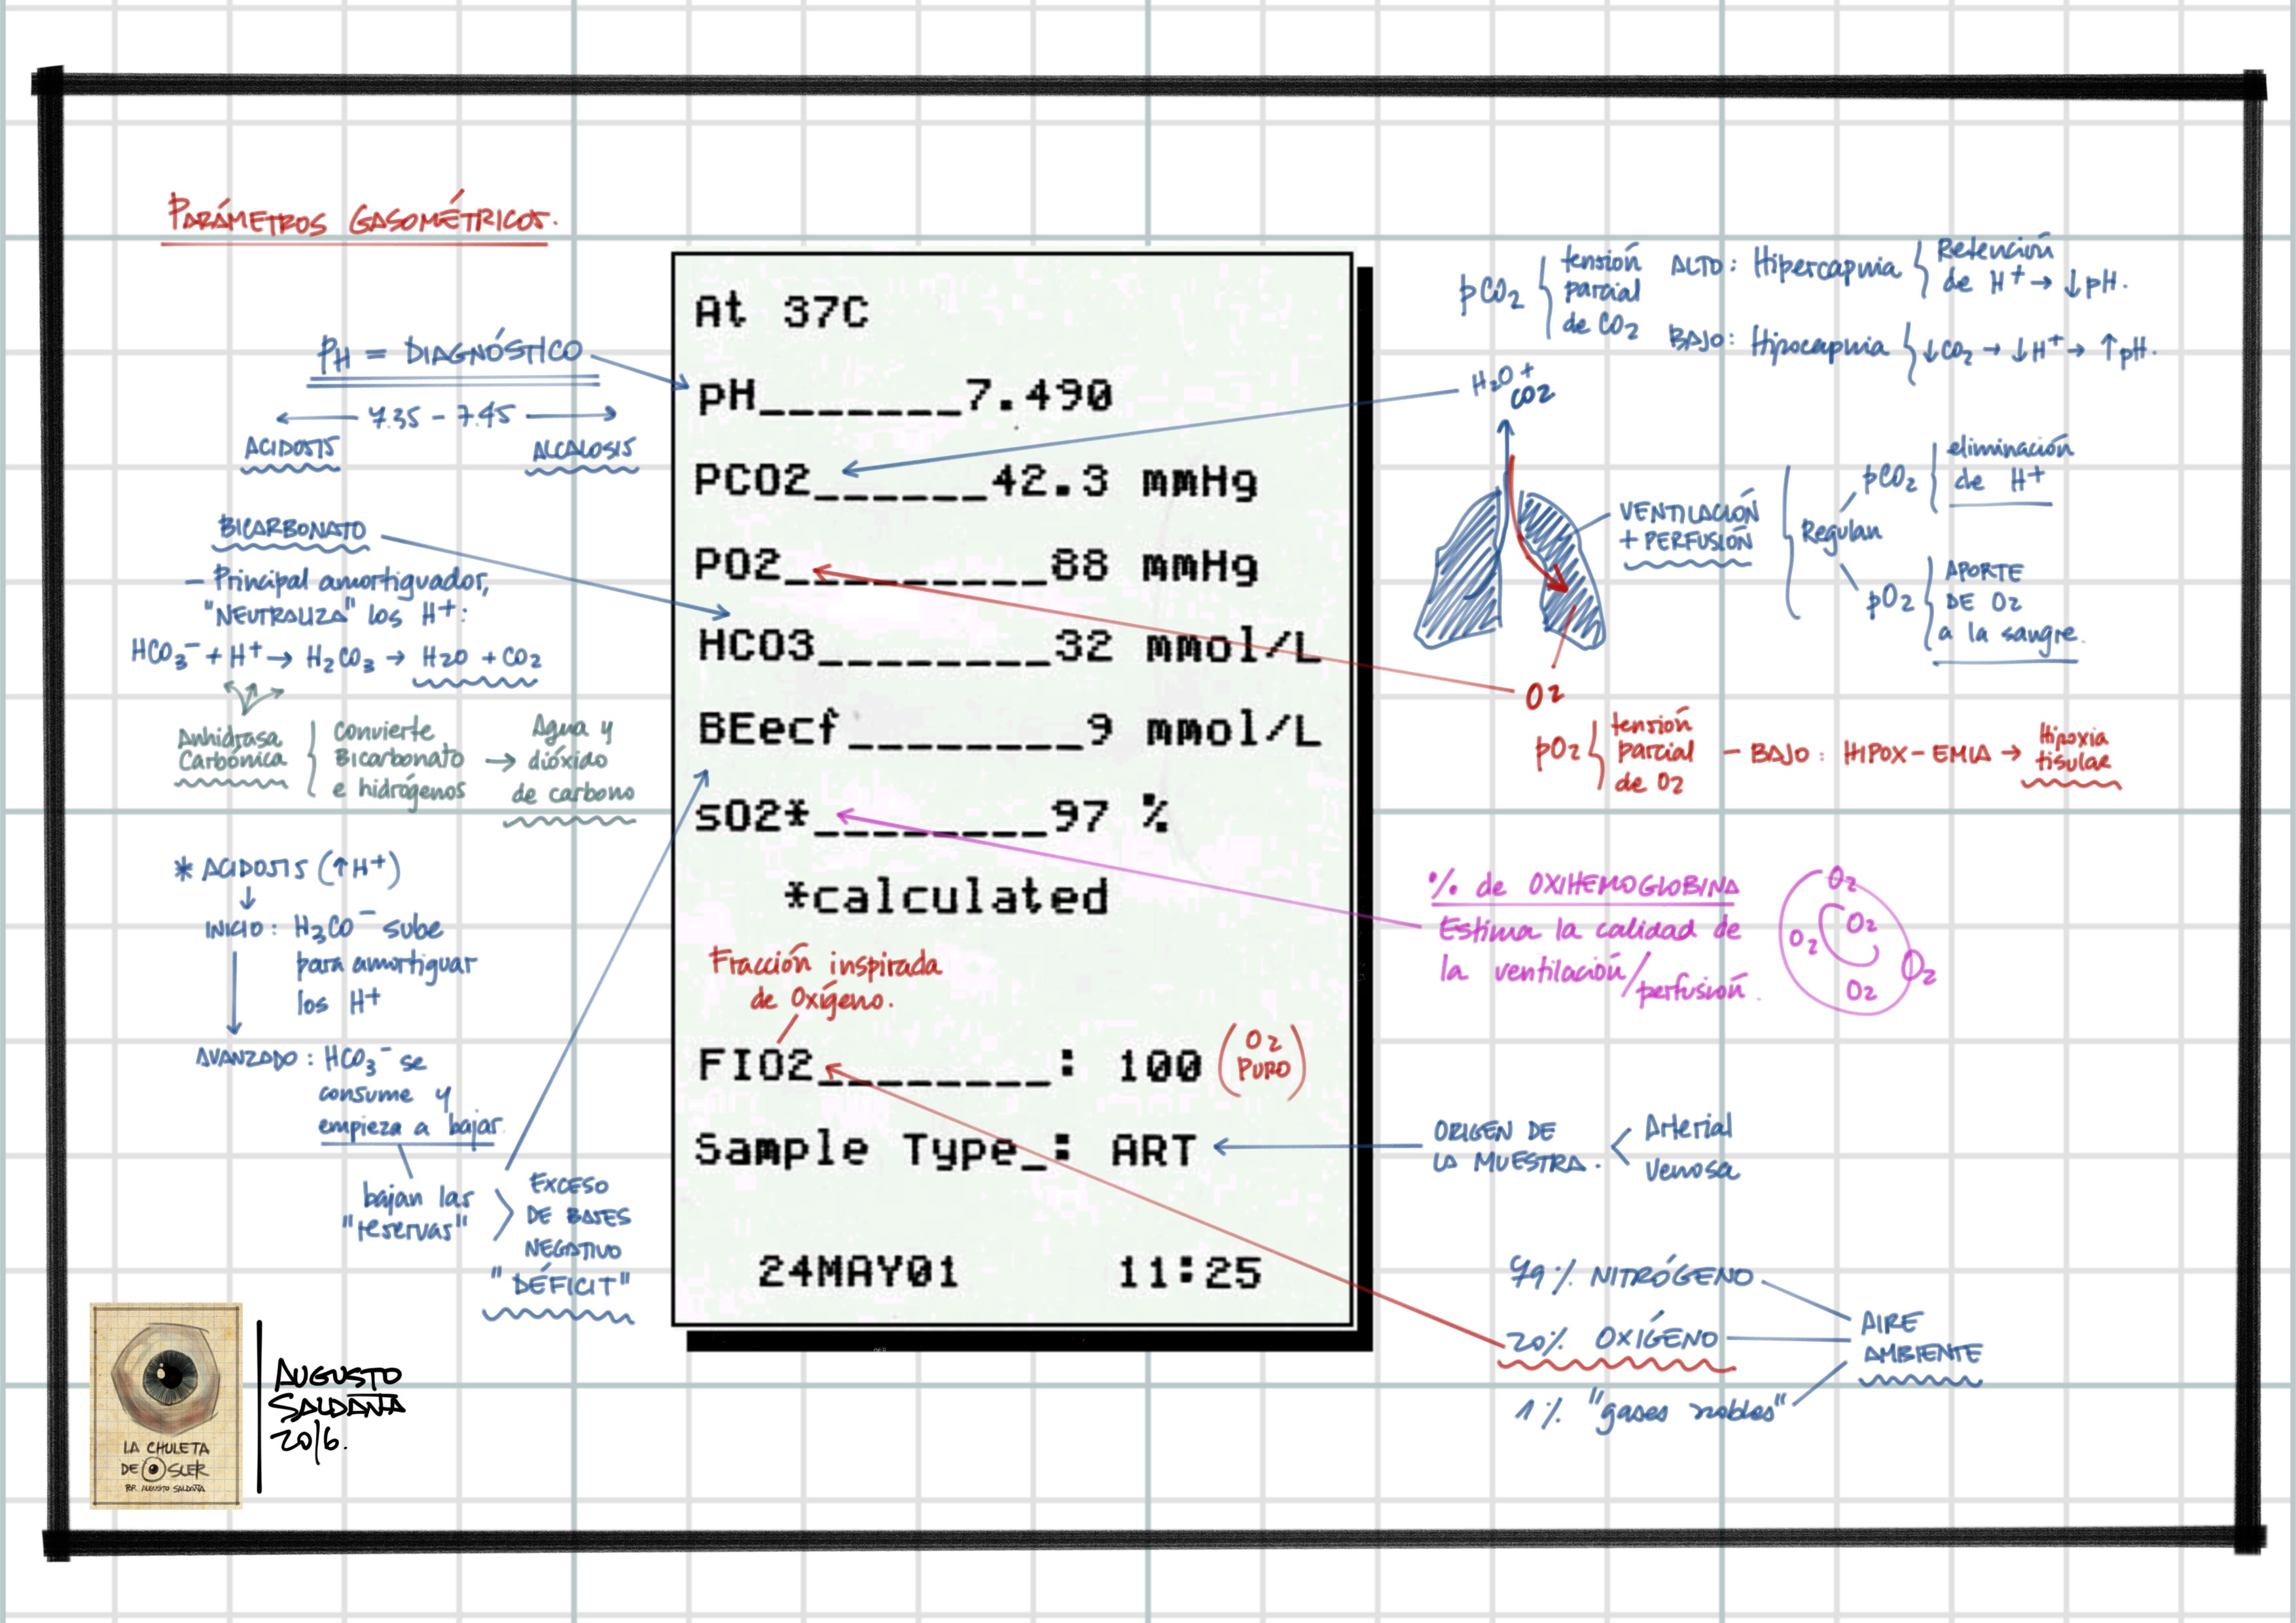 PARÁMETROS GASOMÉTRICOS.
PH = DIAGNÓSTICO
7.35 - 7.45
ACIDOSIS
ALCALOSIS
BICARBONATO
- Principal amortiguador,
"NEUTRALIZA" los H+:
HCO3- + H+ → H2CO3 → H2O + CO2
Anhidrasa
Carbónica
Convierte
Bicarbonato
e hidrógenos
→
Agua y
dióxido
de carbono
* ACIDOSIS (↑H+)
↓
INICIO: H3CO- sube
para amortiguar
los H+
↓
AVANZADO: HCO3- se
consume y
empieza a bajar.
bajan las
"reservas"
EXCESO
DE BASES
NEGATIVO
"DÉFICIT"
At 37C
pH_______7.490
PCO2______42.3 mmHg
PO2_________88 mmHg
HCO3________32 mmol/L
BEecf________9 mmol/L
sO2*________97 %
*calculated
Fracción inspirada
de Oxígeno.
FIO2________: 100
(O2
PURO)
Sample Type_: ART
24MAY01 11:25
pCO2
tensión
parcial
de CO2
ALTO: Hipercapnia
Retención
de H+ → ↓pH.
BAJO: Hipocapnia
↓CO2 → ↓H+ → ↑pH.
H2O +
CO2
VENTILACIÓN
+ PERFUSIÓN
Regulan
pCO2
eliminación
de H+
pO2
APORTE
DE O2
a la sangre.
O2
pO2
tensión
parcial
de O2
- BAJO: HIPOX-EMIA →
Hipoxia
tisular
% de OXIHEMOGLOBINA
Estima la calidad de
la ventilación/perfusión.
O2
O2
O2
O2
O2
ORIGEN DE
LA MUESTRA.
Arterial
Venosa
79% NITRÓGENO
20% OXÍGENO
1% "gases nobles"
AIRE
AMBIENTE
LA CHULETA
DE OSLER
POR AUGUSTO SALDAÑA
AUGUSTO
SALDAÑA
2016.